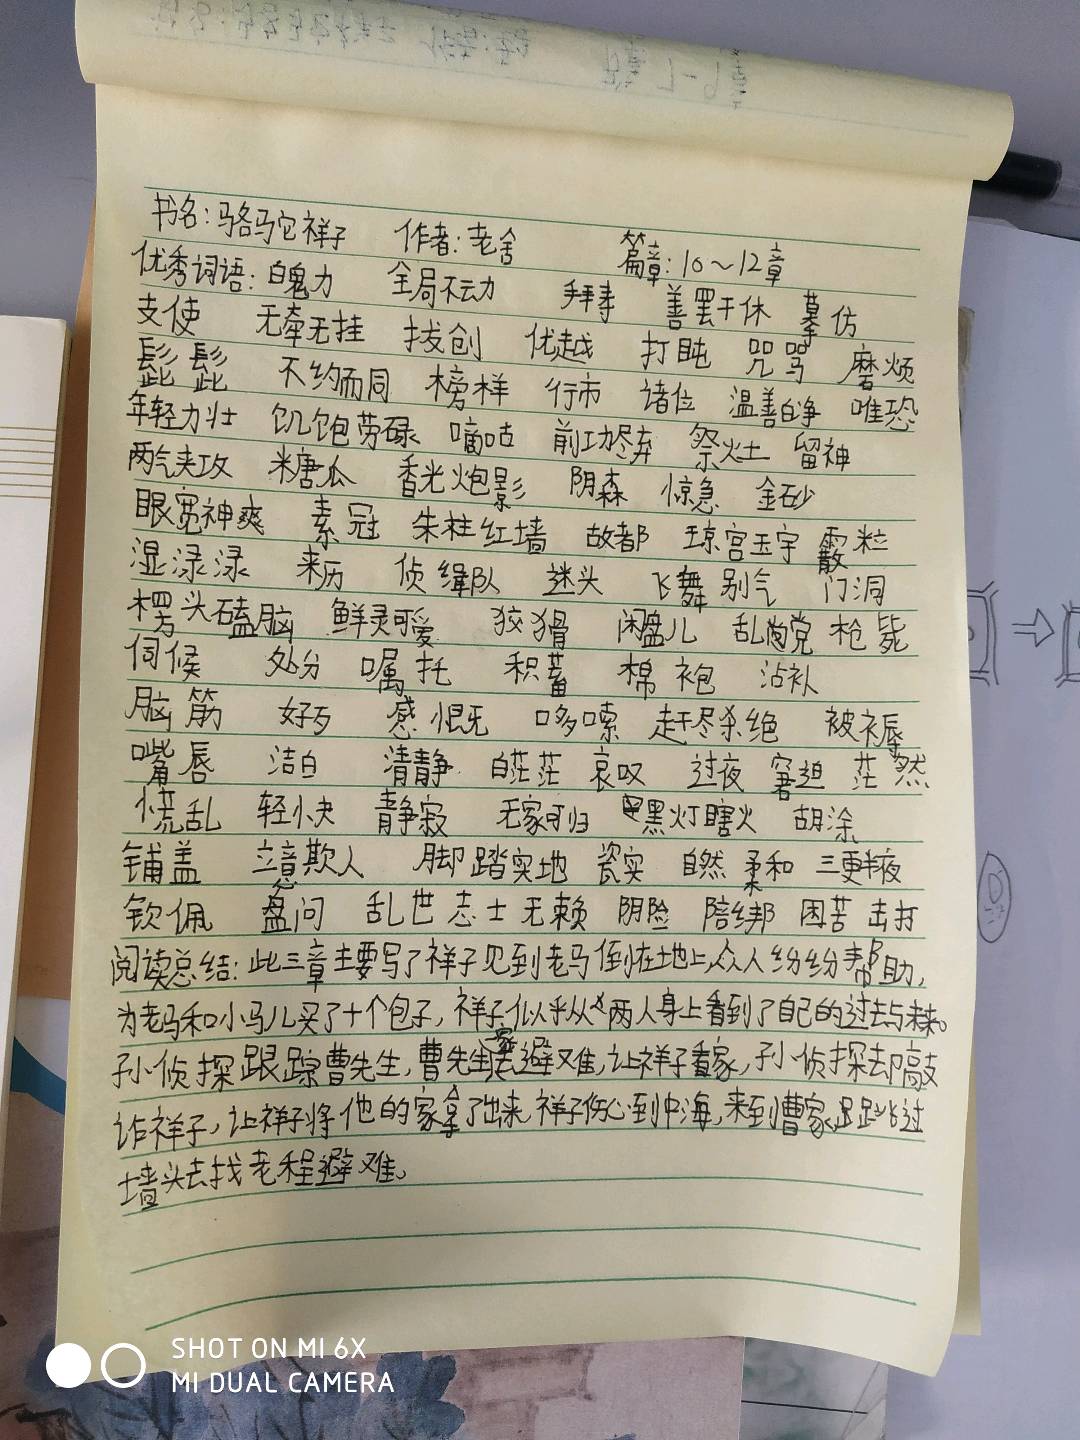 书名:骆驼祥子 作者:老舍 篇章:10~12章
优秀词语:白鬼力 全局不动 拜寿 善罢干休 摹仿
支使 无牵无挂 拔创 优越 打盹 咒骂 磨烦
髭髭 不约而同 榜样 行市 诸位 温善的 唯恐
年轻力壮 饥饱劳碌 嘀咕 前功尽弃 祭灶 留神
两气夹攻 糖瓜 香光炮影 阴森 惊急 金砂
眼宽神爽 素冠 朱柱红墙 故都 琼宫玉宇 霰粒
湿渌渌 来历 侦缉队 迷头 飞舞 别气 门洞
楞头磕脑 鲜灵可爱 狡猾 闲盘儿 乱党 枪毙
伺候 处分 嘱托 积蓄 棉袍 沾补
脑筋 好歹 感慨 哆嗦 赶尽杀绝 被褥
嘴唇 洁白 清静 白茫茫 哀叹 过夜 窘迫 茫然
慌乱 轻快 静寂 无家可归 黑灯瞎火 胡涂
铺盖 立意欺人 脚踏实地 瓷实 自然 柔和 三更半夜
钦佩 盘问 乱世志士 无赖 阴险 陪绑 困苦 击打
阅读总结:此三章主要写了祥子见到老马倒在地上,众人纷纷帮助,
为老马和小马儿买了十个包子,祥子似乎从两人身上看到了自己的过去与未来。
孙侦探跟踪曹先生,曹先生去避难,让祥子看家,孙侦探去却敲
诈祥子,让祥子将他的家拿了出来,祥子伤心到中海,来到曹家,跳过
墙头去找老程避难。
SHOT ON MI 6X
MI DUAL CAMERA